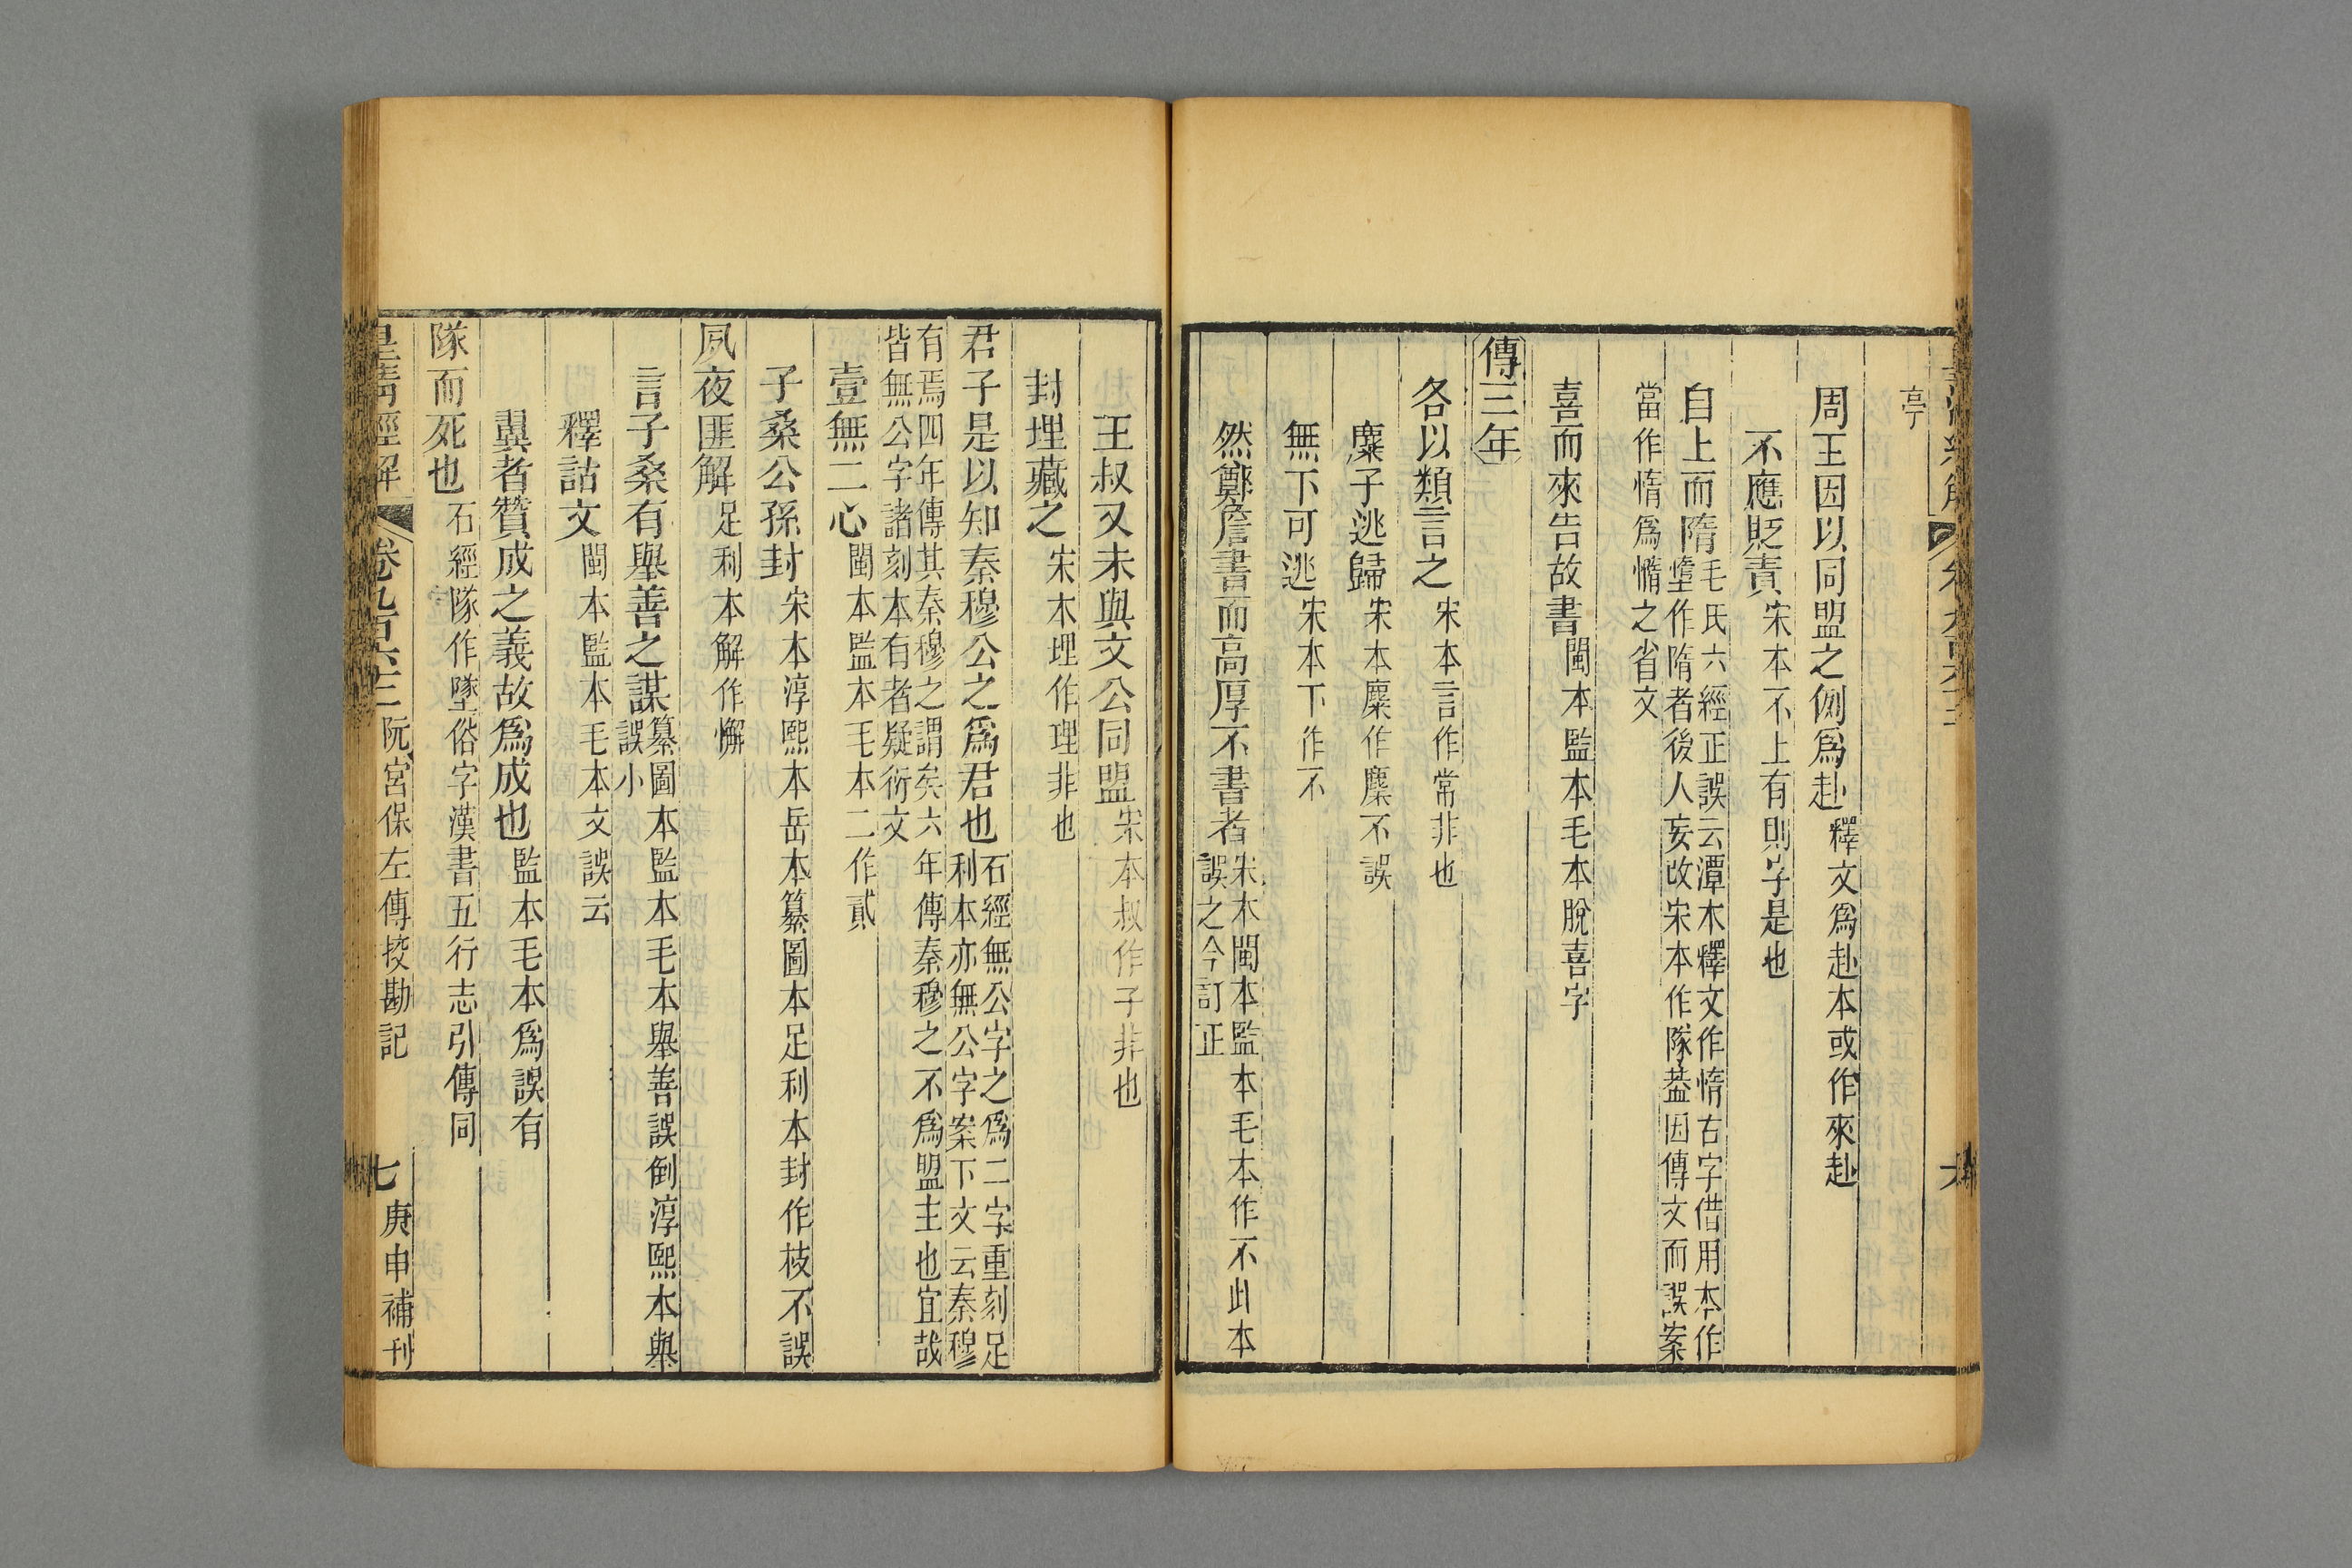 亭
周王因以同盟之例爲赴釋文爲赴本或作來赴
不應貶責宋本不上有則字是也
自上而隋毛氏六經正誤云潭本釋文作惰古字借用本作
墮作隋者後人妄改宋本作隊葢因傳文而誤案
當作惰爲憜之省文
喜而來告故書閩本監本毛本脫喜字
傳三年
各以類言之宋本言作常非也
麋子逃歸宋本麋作麇不誤
無下可逃宋本下作不
然鄭詹書而高厚不書者宋本閩本監本毛本作不此本
誤之今訂正
王叔又未與文公同盟宋本叔作子非也
封埋藏之宋本埋作理非也
君子是以知秦穆公之爲君也石經無公字之爲二字重刻足
利本亦無公字案下文云秦穆
有焉四年傳其秦穆之謂矣六年傳秦穆之不爲盟主也宜哉
皆無公字諸刻本有者疑衍文
壹無二心閩本監本毛本二作貳
子桑公孫封宋本淳熙本岳本纂圖本足利本封作枝不誤
夙夜匪解足利本解作懈
言子桑有舉善之謀纂圖本監本毛本舉善誤倒淳熙本舉
誤小
釋詁文閩本監本毛本文誤云
翼者贊成之義故爲成也監本毛本爲誤有
隊而死也石經隊作墜俗字漢書五行志引傳同
皇清經解 卷九百六三 阮宮保左傳挍勘記 七 庚申補刊